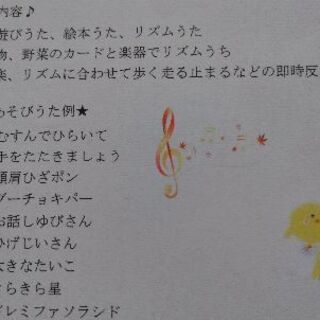 内容♪
遊びうた、絵本うた、リズムうた
物、野菜のカードと楽器でリズムうち
楽、リズムに合わせて歩く走る止まるなどの即時反
あそびうた例★
むすんでひらいて
手をたたきましょう
頭肩ひざポン
グーチョキパー
お話しゆびさん
ひげじいさん
大きなたいこ
きらきら星
ドレミファソラシド